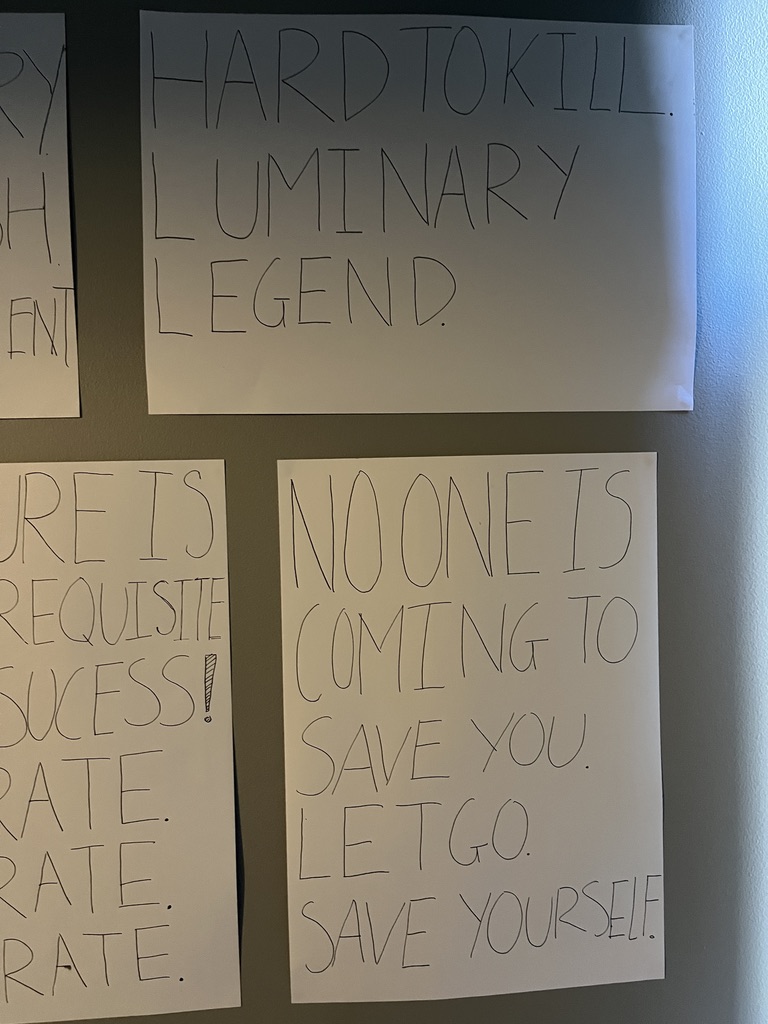 RY
HARD TO KILL.
LUMINARY
LEGEND.
SH.
ENT
URE IS
REQUISITE
SUCESS!
RATE.
RATE.
RATE.
NO ONE IS
COMING TO
SAVE YOU.
LET GO.
SAVE YOURSELF.